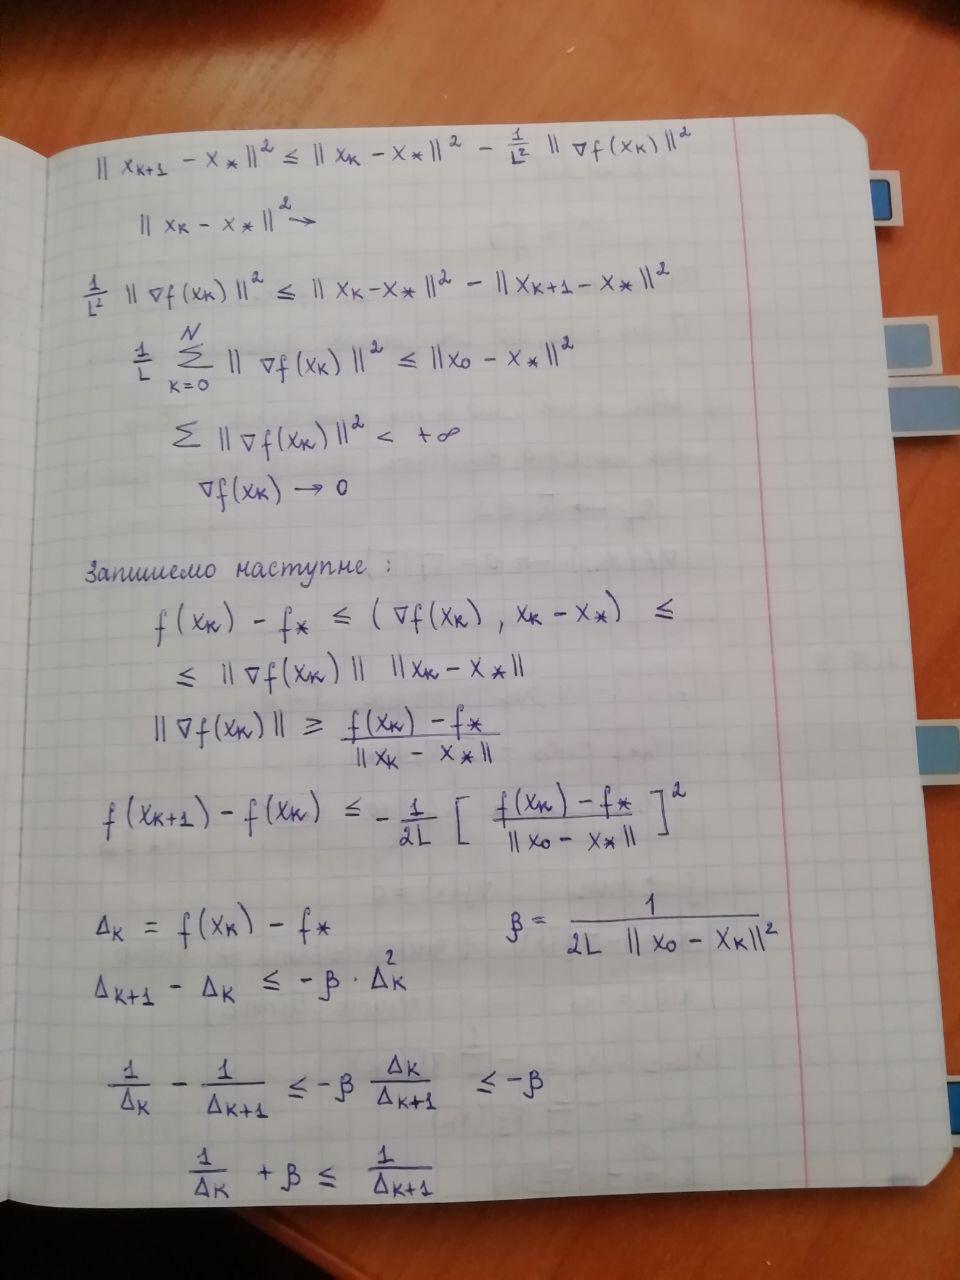 || xₖ₊₁ − x* ||² ≤ || xₖ − x* ||² − 1/L² || ∇f(xₖ) ||²
|| xₖ − x* ||² →
1/L² || ∇f(xₖ) ||² ≤ || xₖ − x* ||² − || xₖ₊₁ − x* ||²
1/L ∑_{k=0}^{N} || ∇f(xₖ) ||² ≤ || x₀ − x* ||²
∑ || ∇f(xₖ) ||² < +∞
∇f(xₖ) → 0
Запишемо наступне :
f(xₖ) − f* ≤ ( ∇f(xₖ) , xₖ − x* ) ≤
≤ || ∇f(xₖ) || || xₖ − x* ||
|| ∇f(xₖ) || ≥ (f(xₖ) − f*) / || xₖ − x* ||
f(xₖ₊₁) − f(xₖ) ≤ − 1/2L [ (f(xₖ) − f*) / || x₀ − x* || ]²
Δₖ = f(xₖ) − f* β = 1 / (2L || x₀ − xₖ ||²)
Δₖ₊₁ − Δₖ ≤ −β · Δₖ²
1/Δₖ − 1/Δₖ₊₁ ≤ −β Δₖ/Δₖ₊₁ ≤ −β
1/Δₖ + β ≤ 1/Δₖ₊₁